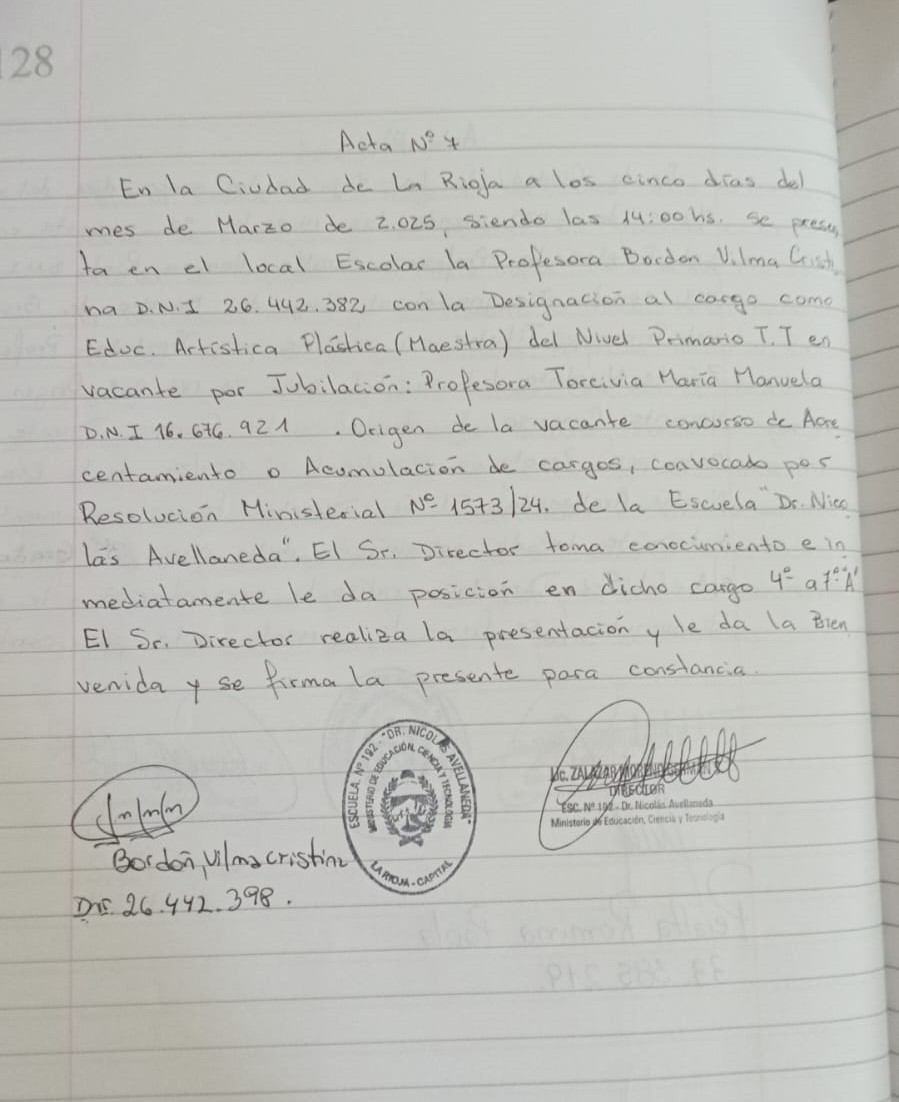 128
Acta Nº 7
En la Ciudad de La Rioja a los cinco días del
mes de Marzo de 2.025, siendo las 14:00 hs. se presen
ta en el local Escolar la Profesora Bordon Vilma Cristi
na D.N.I 26.442.382 con la Designación al cargo como
Educ. Artística Plástica (Maestra) del Nivel Primario T.T en
vacante por Jubilación: Profesora Torcivia María Manuela
D.N.I 16.676.921 . Origen de la vacante concurso de Acre
centamiento o Acumulación de cargos, convocado por
Resolución Ministerial Nº 1573/24. de la Escuela "Dr. Nico
lás Avellaneda". El Sr. Director toma conocimiento e in
mediatamente le da posición en dicho cargo 4º a 7º "A"
El Sr. Director realiza la presentación y le da la Bien
venida y se firma la presente para constancia.
ESCUELA Nº 192 - "DR. NICOLAS AVELLANEDA"
MINISTERIO DE EDUCACIÓN, CIENCIA Y TECNOLOGIA
LA RIOJA - CAPITAL
DIRECTOR
ESC. Nº 192 - Dr. Nicolás Avellaneda
Ministerio de Educación, Ciencia y Tecnología
Bordón, Vilma cristina
26.442.398.